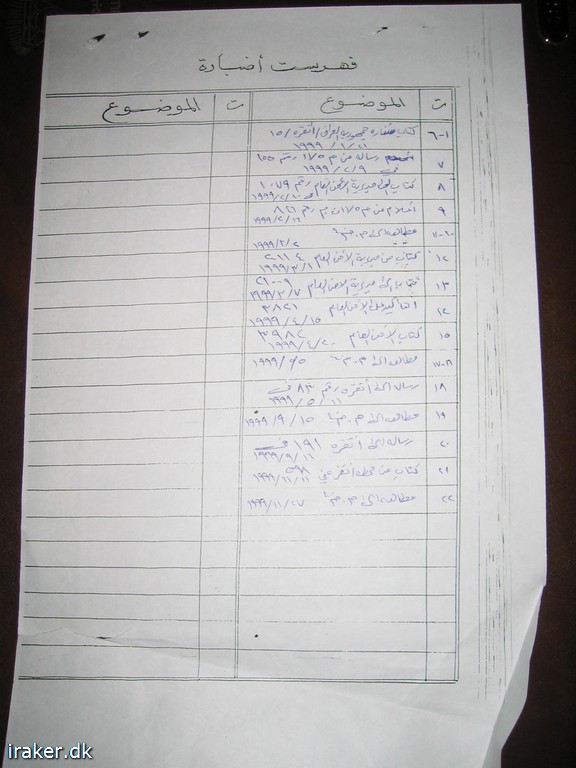 فهرست أضبارة
ت الموضوع ت الموضوع
٦-١ كتاب سفارة جمهورية العراق / أنقره / ١٥
١٩٩٩/١/١٦
٧ رساله من م ١٧٥ رقم ١٥٥
في ١٩٩٩/٢/٩
٨ كتاب الى مديرية الأمن العام رقم ١٠٧٩
٩ رقم ٨٢١
١٩٩٩/٢/١٦
١١-١٠ مطالعه الى م.م
١٩٩٩/٣/٢
١٢ كتاب من مديرية الأمن العام ٢١١٤
١٩٩٩/٣/١
١٣ كتاب الى مديرية الأمن العام
١٩٩٩/٣/٧
١٤ الأمن العام ٣٨٢١
١٩٩٩/٤/١٥
١٥ كتاب الأمن العام ٣٩٨٢
١٩٩٩/٤/٢٠
مطالعه الى م.م
١٨ رساله الى أنقره رقم ٨٣ في
١٩٩٩/٥/١٦
١٩ مطالعه الى م.م ١٩٩٩/٩/١٥
٢٠ رساله الى أنقره ١٩١ في
١٩٩٩/٩/١٦
٢١ كتاب من محطه أنقره في
١٩٩٩/١١/١١
٢٢ مطالعه الى م.م ١٩٩٩/١١/٢٧
iraker.dk